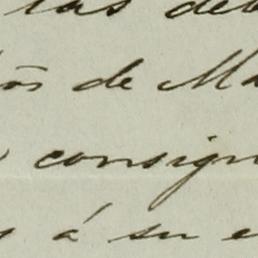 las deb
os de Ma
consign
s á su e